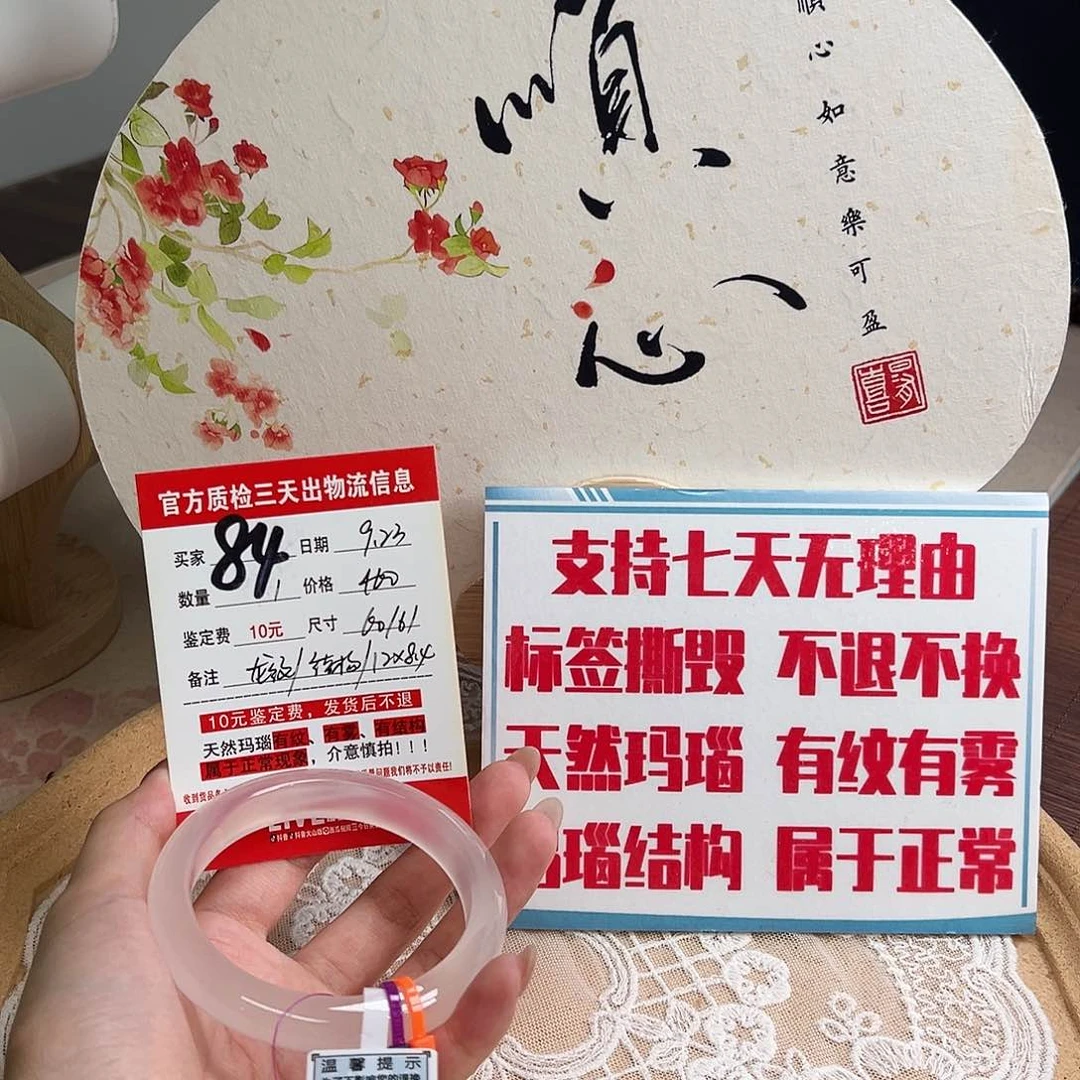 順心
順心如意樂可盈
官方质检三天出物流信息
买家 84 日期 9.23
数量 1 价格 460
鉴定费 10元 尺寸 60/61
备注 龙纹/结构/12×8.4
10元鉴定费，发货后不退
天然玛瑙有纹、有雾、有结构
属于正常现象，介意慎拍！！！
支持七天无理由
标签撕毁 不退不换
天然玛瑙 有纹有雾
瑙结构 属于正常
温馨提示